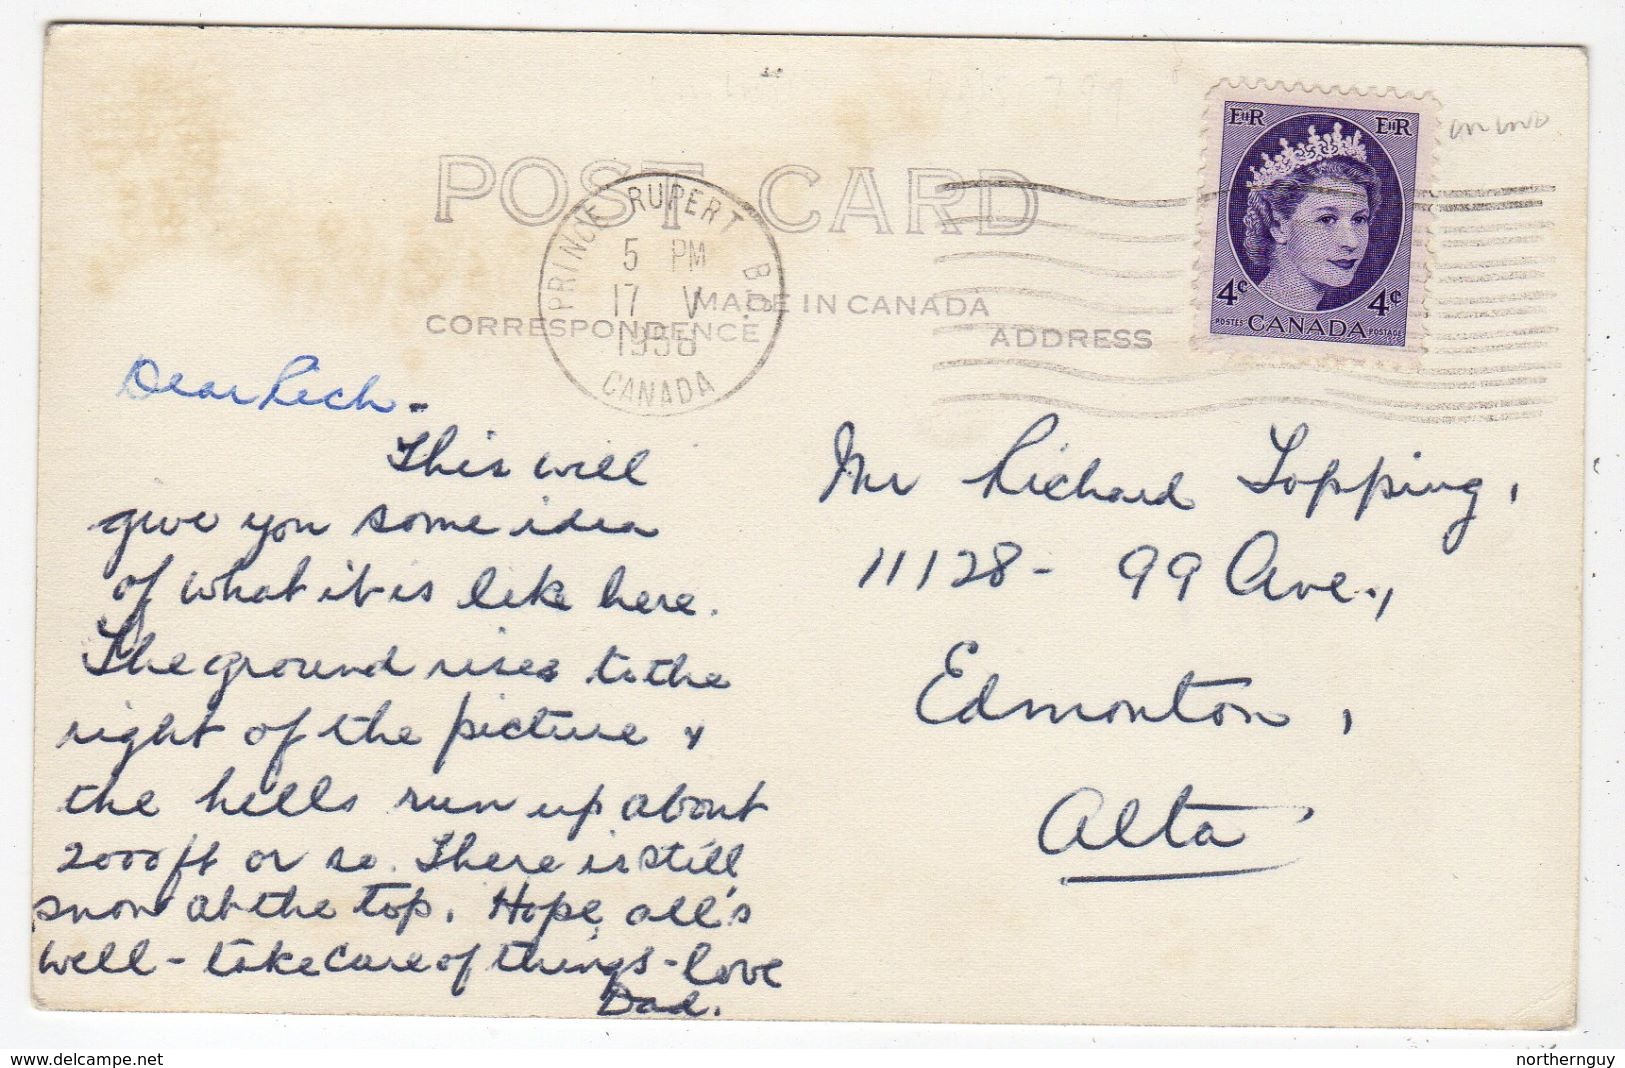 POST CARD
PRINCE RUPERT B.C.
5 PM
17 V
CANADA
MADE IN CANADA
CORRESPONDENCE
ADDRESS
EIIR EIIR
4¢ 4¢
POSTES CANADA POSTAGE
Dear Rich -
This will
give you some idea
of what it is like here.
The ground rises to the
right of the picture &
the hills run up about
2000 ft or so. There is still
snow at the top. Hope all's
well - take care of things - love
Dad.
Mr Richard Topping,
11128 - 99 Ave.,
Edmonton,
Alta
delcampe.net
northernguy